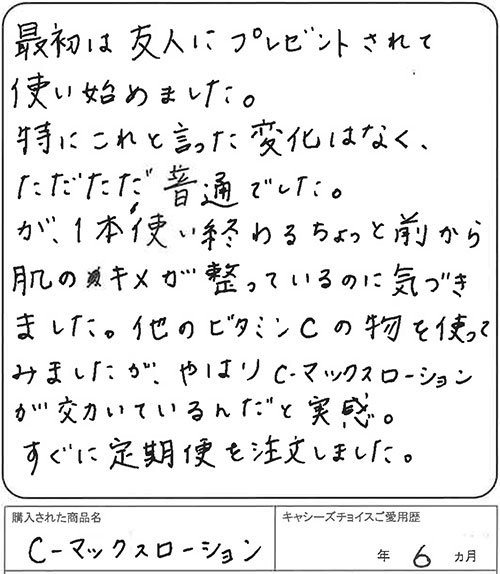 最初は友人にプレゼントされて
使い始めました。
特にこれと言った変化はなく、
ただただ普通でした。
が、1本使い終わるちょっと前から
肌のキメが整っているのに気づき
ました。他のビタミンCの物を使って
みましたが、やはりC-マックスローション
が効いているんだと実感。
すぐに定期便を注文しました。
購入された商品名
キャシーズチョイスご愛用歴
C-マックスローション
年 6 ヵ月